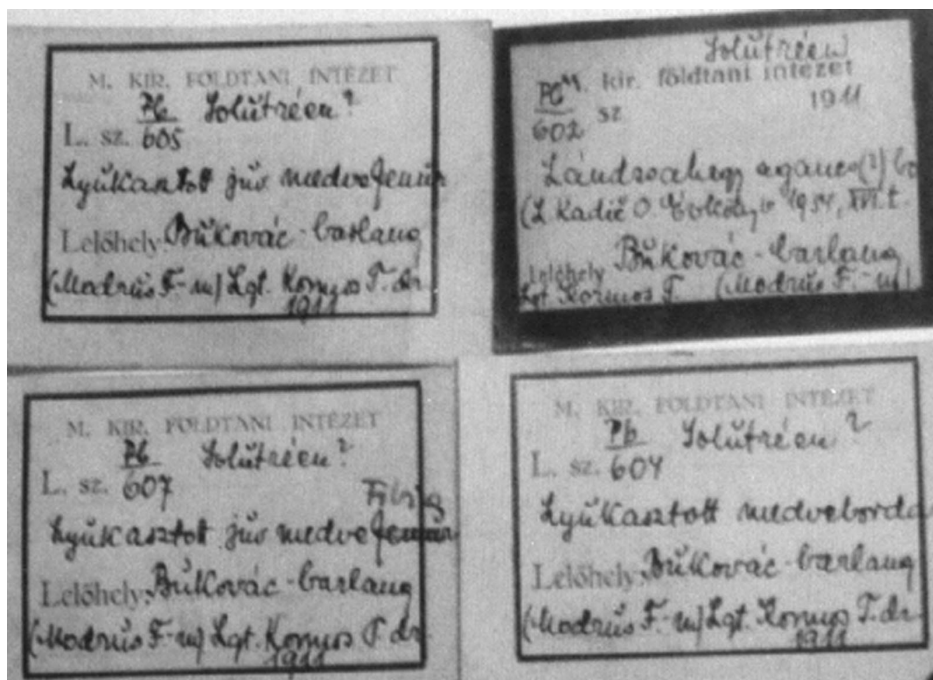 M. KIR. FÖLDTANI INTÉZET
Pb Solŭtréen?
L. sz. 605
Lyŭkasztott jŭv medvefemŭr
Lelőhely: Bŭkovác-barlang
(Modrŭs F.-m) Lgt. Kormos T. dr.
1911
Solŭtréen
M. kir. földtani intézet
Pb
602 sz 1911
Lándzsahegy agancs(?) bo
(L. Kadić O. 1934, XVI.t.
Lelőhely Bŭkovác-barlang
Lgt. Kormos T. (Modrŭs F.-m)
M. KIR. FÖLDTANI INTÉZET
Pb Solŭtréen?
L. sz. 607
Lyŭkasztot jŭv medvefemŭr
Lelőhely: Bŭkovác-barlang
(Modrŭs F.-m) Lgt. Kormos T. dr.
1911
M. KIR. FÖLDTANI INTÉZET
Pb Solŭtréen?
L. sz. 604
Lyŭkasztott medveborda
Lelőhely: Bŭkovác-barlang
(Modrŭs F.-m) Lgt. Kormos T. dr.
1911